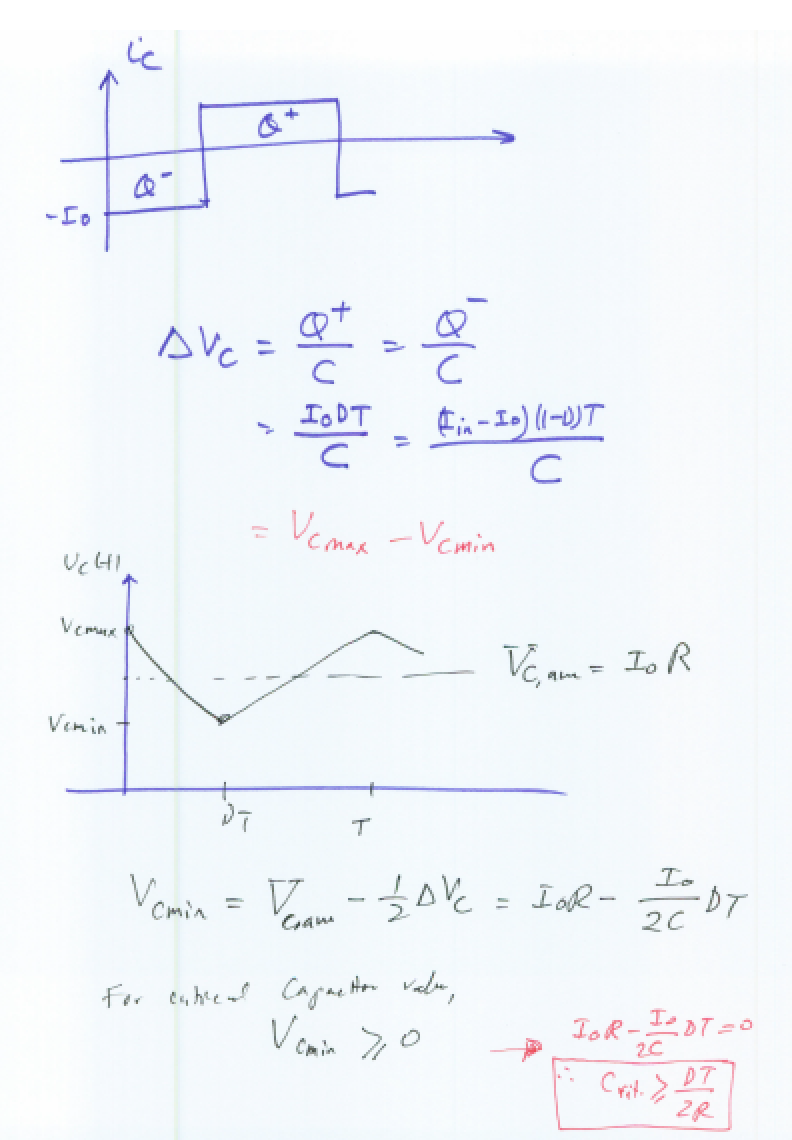 ic
Q⁺
Q⁻
-Io
ΔVc = Q⁺/C = Q⁻/C
= IoDT/C = (Iin-Io)(1-D)T/C
= Vcmax - Vcmin
Vc(t)
Vcmax
V̄c,am = IoR
Vcmin
DT
T
Vcmin = V̄c,am - 1/2 ΔVc = IoR - Io/2C DT
For critical Capacitor value,
Vcmin ⩾ 0
→ IoR - Io/2C DT = 0
∴ Ccrit. ⩾ DT/2R